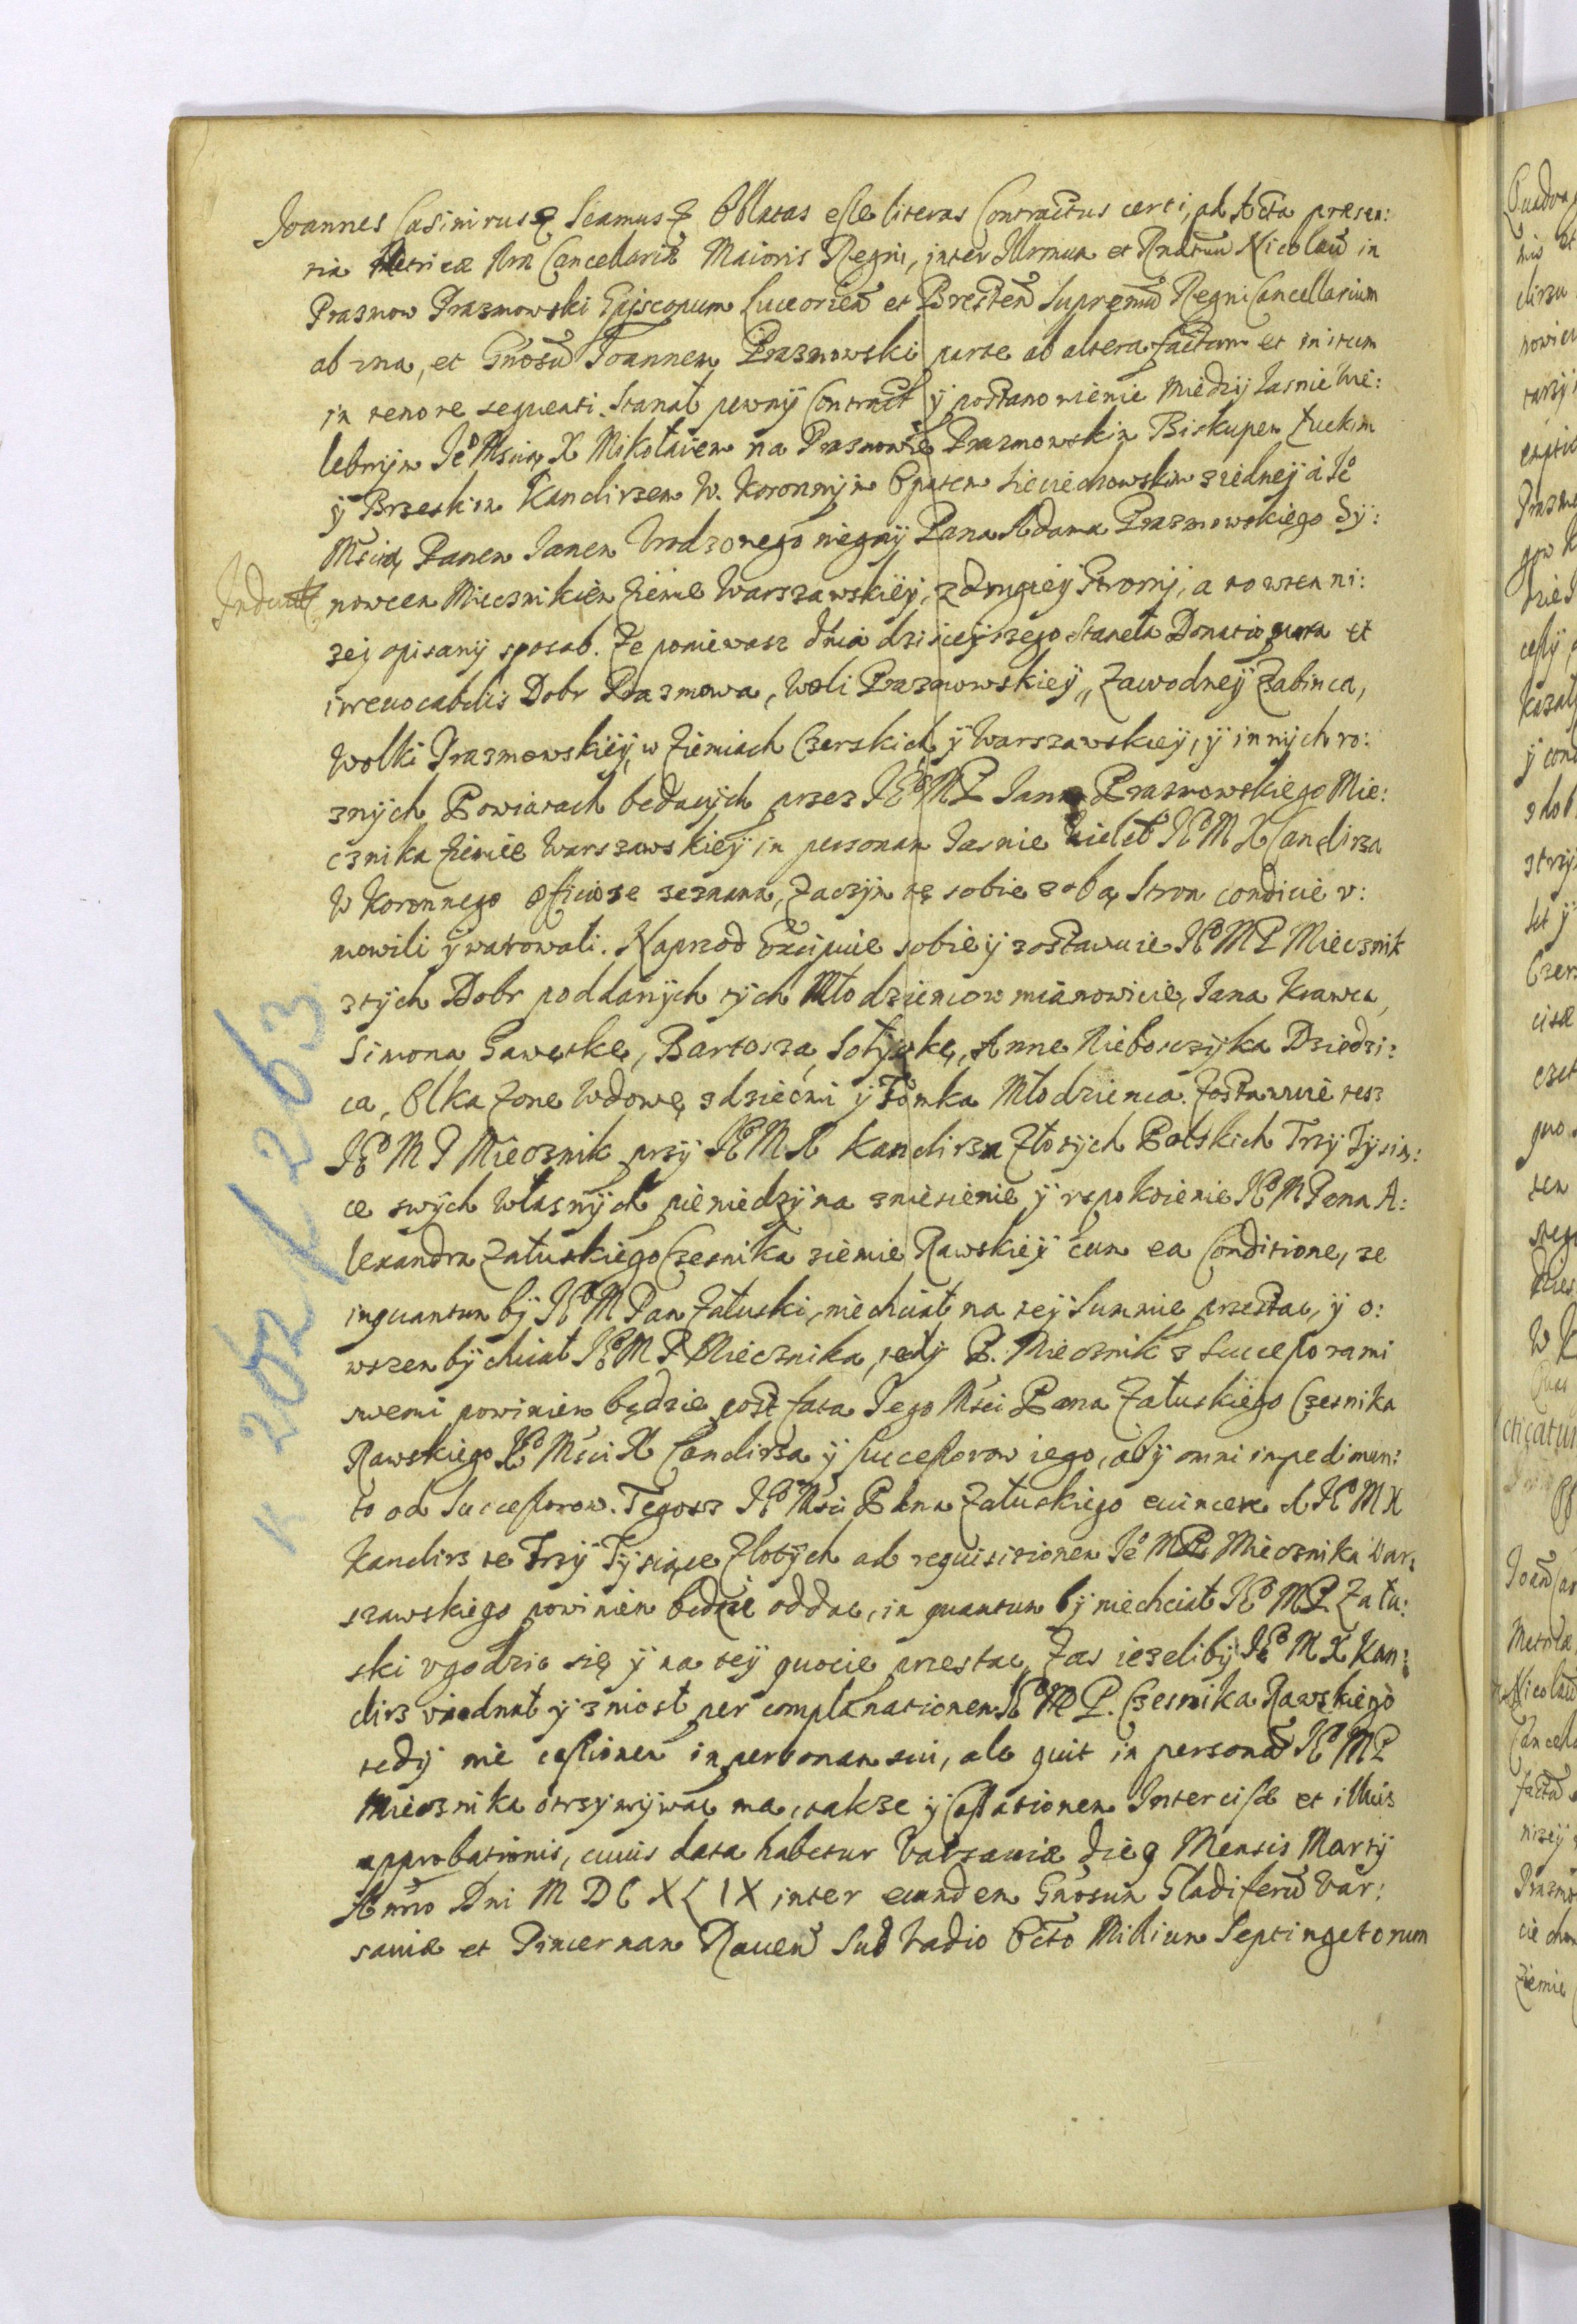 Joannes Casimirus etc Scamus etc Oblatas esse literas Contractus certi, ad Acta præsen:
tia Metricæ Nræ Cancellariæ Maioris Regni, inter Illrmum et Rndrum Nicolaum in
Prazmow Prazmowski Episcopum Luceorien et Bresten Supremum Regni Cancellarium
ab vna, et Gnosum Joannem Prazmowski parte ab altera factum et initum
in tenore sequenti. Stanął pewny Contract y postanowienie między Jasnie Wie:
lebnym Je° Mscią X Mikołaiem na Prazmowie Prazmowskim Biskupem Łuckim
y Brzeskim Kanclirzem W. Koronnym Opatem Sieciechowskim z iedney á Je°
Mścią Panem Janem Vrodzonego niegdy Pana Adama Prazmowskiego Sy:
Induct
nowcem Miecznikiem Ziemie Warszawskiey, z drugiey Strony, a to w ten ni:
zej opisany sposob. Ze poniewasz dnia dzisieyszego staneła Donatio mera et
irreuocabilis Dobr Prazmowa, Woli Prazmowskiey, Zawodney Zabinca,
Wolki Prazmowskiey, w Ziemiach Czerskich y Warszawskiey, y innych ro:
znych Powiatach bedacych przez JE° MP Jana Prazmowskiego Mie:
cznika Ziemie Warszawskiey in personam Jasnie Wieleb JE° M X Canclirza
W Koronnego officiose zeznana, Zaczym te sobie z obą Stron condicie v:
mowili y warowali. Naprzod Excipuie sobie y zostawuie JE° MP Miecznik
z tych Dobr poddanych tych Młodziencow mianowicie, Jana Krawca,
Simona Gawęskę, Bartosza, Sołyskę, Anne Nieboszczyka Dziedzi:
ca, Olka Zone Wdowę z dziećmi y Tomka Młodzienca. Zostawuie tesz
JE° M P Miecznik przy JE° M X Kanclirzu Złotych Polskich Trzy Tysia:
ce swych własnych pieniedzy na zniesienie y vspokoienie JE° M Pana A:
lexandra Załuskiego Czesnika ziemie Rawskiey cum ea Conditione, ze
inquantum by JE° M Pan Załuski, niechciał na tey Summie przestac, y o:
wszem by chciał JE° M P Miecznika, tedy P. Miecznik z Successorami
swemi powinien będzie post fata Jego Msci Pana Załuskiego Czesnika
Rawskiego JE° Mści X Canclirza y successorow iego, aby omni impedimen:
to od Successorow. Tegosz JE° Msci Pana Załuskiego euincere A JE° M X
Kanclirz te Trzy Tysiące Złotych ad requisitionem Je° M P Miecznika War:
szawskiego powinien będzie oddac, in quantum by niechciał JE° MP Zału:
ski vgodzic się y na tey quocie przestac, Zas iezeliby JE° M X Kan:
clirz viednał y zniosł per complanationem JE° M P. Czesnika Rawskiego
tedy nie cessionem in personam sui, ale quit in personam JE° MP
Miecznika otrzymywac ma, takze y Cassationem Intercisæ et illius
approbationis, cuius data habetur Varsauiæ Die 9 Mensis Marty
Anno Dni M D C X L I X inter eundem Gnosum Gladiferum Var:
sauiæ et Pincernam Rauen Sub Vadio Octo Milium Septingetorum
K 262 / 263